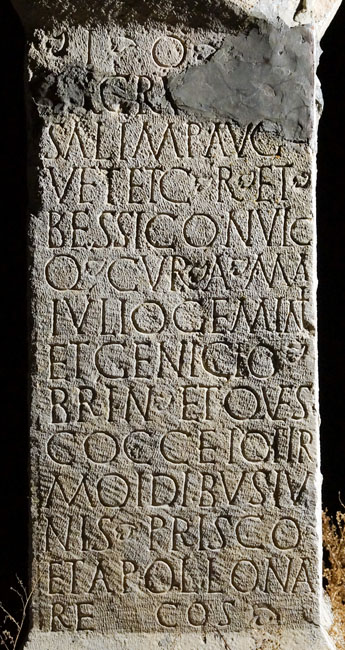 I O
CR
SAL IMP AVG
VET ET C R ET
BESSI CON VIC
Q CVR A MA
IVLIO GEMIN
ET GENICIO
BRIN ET QVES
COCCEIO HIR
MO IDIBVS IV
NIS PRISCO
ET APOLLONA
RE COS